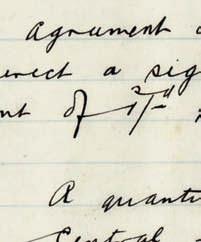 agrument
erect a sig
nt of
A quanti
Central